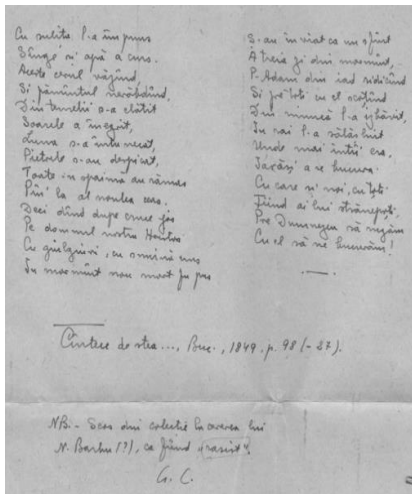 Cu sulița l-a împuns
Sânge și apă a curs.
Aceste cerul văzând,
Și pământul nerăbdând,
Din temelii s-a clătit
Soarele a înegrit,
Luna s-a întunecat,
Pietrile s-au despicat,
Toate-n spaimă au rămas
Pîn' la al noulea ceas.
Deci dînd dupe cruce jos
Pe domnul nostru Hristos
Cu giulgiuri, cu smirnă uns
În mormînt nou mort fu pus
S-au înviat ca un sfînt
A treia zi din mormînt,
P-Adam din iad ridicînd
Și pe toți cu el scoțînd
Din munca l-a izbăvit,
În rai l-a sălășluit
Unde mai întîi era,
Iarăși a se bucura.
Cu care și noi, cu toți
Fiind ai lui strănepoți,
Pre Dumnezeu să rugăm
Cu el să ne bucurăm!
Cîntece de stea..., Buc., 1849, p. 98 (-27).
NB. - Scos din colecție la cererea lui
N. Barbu (?), ca fiind „rasist".
G. C.